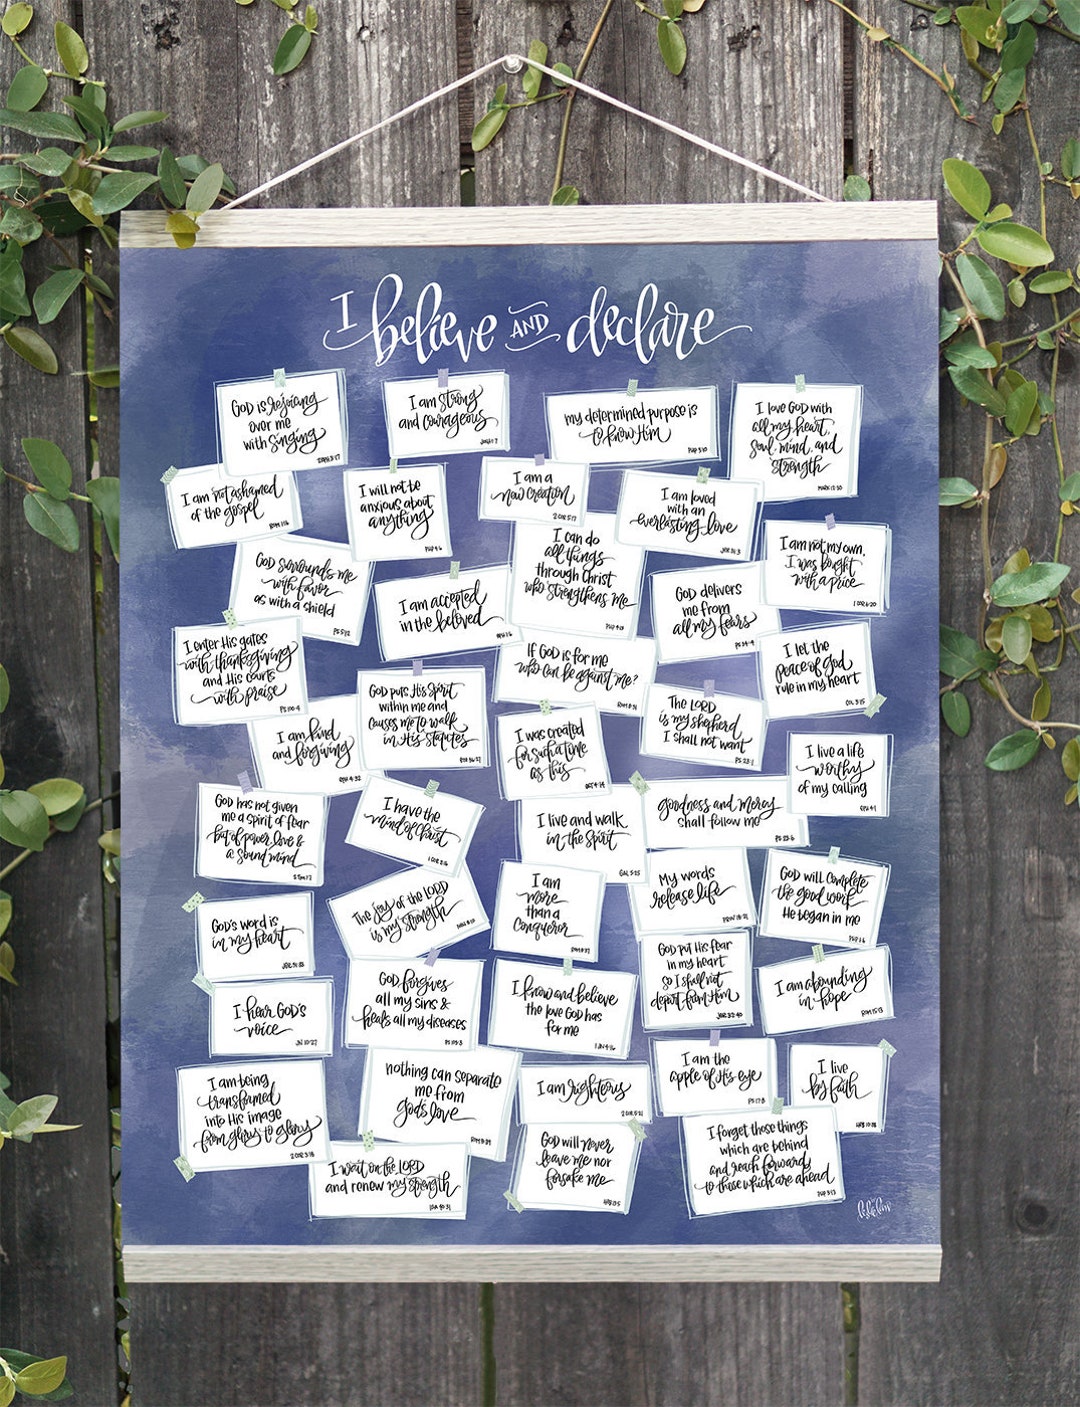 I believe AND declare
GOD IS rejoicing
over me
with singing
ZEPH 3:17
I am strong
and courageous
JOSH 1:7
my determined purpose is
to know Him
PHP 3:10
I love GOD with
all my heart,
soul, mind, and
strength
MARK 12:30
I am not ashamed
of the gospel
ROM 1:16
I will not be
anxious about
anything
PHP 4:6
I am a
new creation
2 COR 5:17
I am loved
with an
everlasting love
JER 31:3
GOD surrounds me
with favor
as with a shield
PS 5:12
I am accepted
in the beloved
EPH 1:6
I can do
all things
through Christ
who strengthens me
PHP 4:13
GOD delivers
me from
all my fears
PS 34:4
I am not my own,
I was bought
with a price
1 COR 6:20
I enter His gates
with thanksgiving
and His courts
with praise
PS 100:4
If GOD is for me
who can be against me?
ROM 8:31
I let the
peace of God
rule in my heart
COL 3:15
I am kind
and forgiving
EPH 4:32
GOD puts His Spirit
within me and
causes me to walk
in His statutes
EZK 36:27
I was created
for such a time
as this
EST 4:14
The LORD
is my shepherd
I shall not want
PS 23:1
I live a life
worthy
of my calling
EPH 4:1
GOD has not given
me a spirit of fear
but of power, love &
a sound mind
2 TIM 1:7
I have the
mind of Christ
1 COR 2:16
I live and walk
in the Spirit
GAL 5:25
goodness and mercy
shall follow me
PS 23:6
The joy of the LORD
is my strength
NEH 8:10
I am
more
than a
conqueror
ROM 8:37
My words
release life
PROV 18:21
GOD will complete
the good work
He began in me
PHP 1:6
GOD'S word is
in my heart
JER 31:33
I hear GOD'S
voice
JN 10:27
GOD forgives
all my sins &
heals all my diseases
PS 103:3
I know and believe
the love GOD has
for me
1 JN 4:16
GOD put His fear
in my heart
so I shall not
depart from Him
JER 32:40
I am abounding
in hope
ROM 15:13
I am being
transformed
into His image
from glory to glory
2 COR 3:18
nothing can separate
me from
god's love
ROM 8:39
I am righteous
2 COR 5:21
I am the
apple of His eye
PS 17:8
I live
by faith
HEB 10:38
I wait on the LORD
and renew my strength
ISA 40:31
GOD will never
leave me nor
forsake me
HEB 13:5
I forget those things
which are behind
and reach forward
to those which are ahead
PHP 3:13